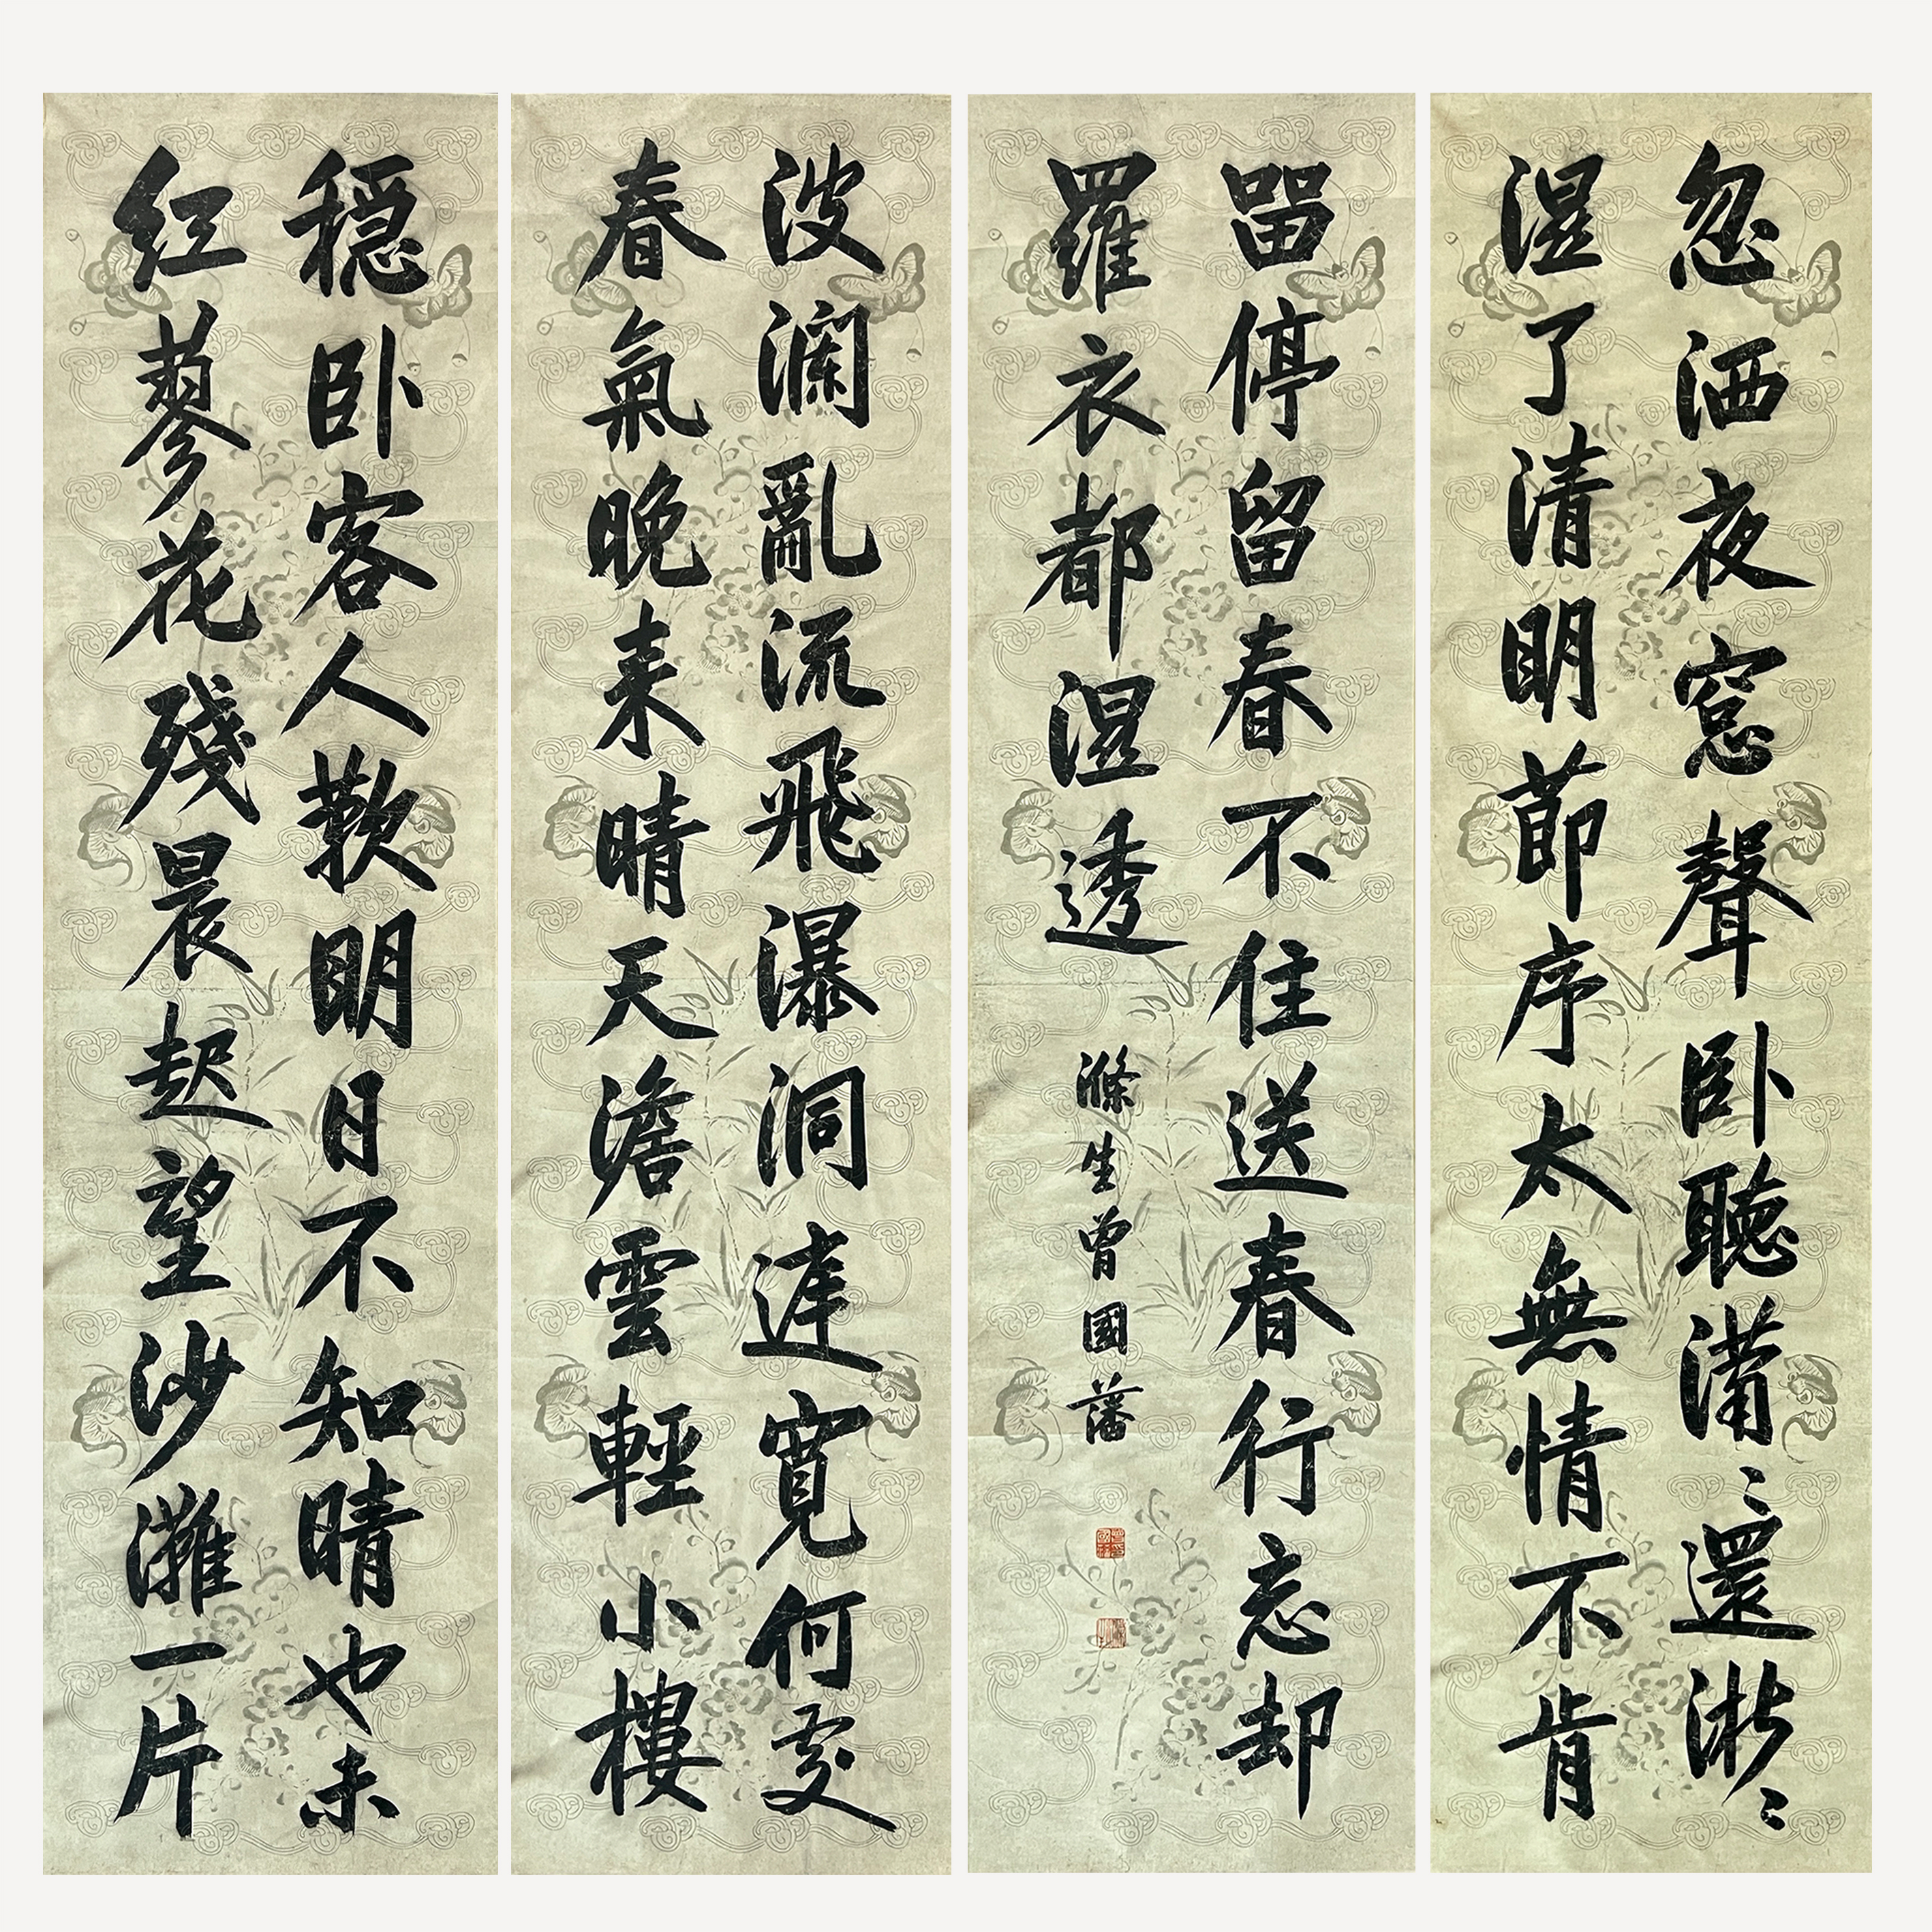 忽洒夜窓聲卧聽瀟〻還淅〻
湿了清明節序太無情不肯
留停留春不住送春行忘却
羅衣都湿透
滌生曾國藩
波瀾亂流飛瀑洞達寬何處
春氣晚来晴天澹雲輕小樓
穏卧客人歎明日不知晴也未
紅蓼花殘晨起望沙灘一片